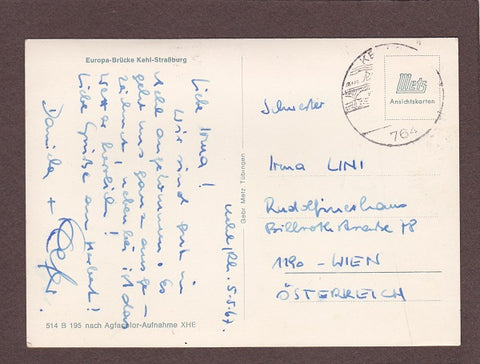 Europa-Brücke Kehl-Straßburg
Kehl/Rh. 5.5.67.
Liebe Irma!
Wir sind gut in
Kehl angekommen. Es
geht uns ganz ausge-
zeichnet, nebenbei ist das
Wetter herrlich!
Liebe Grüße an Herbert!
Daniela +
514 B 195 nach Agfacolor-Aufnahme XHE
Gebr. Metz, Tübingen
KE
764
Metz
Ansichtskarten
Schwester
Irma LINI
Rudolfinerhaus
Billrothstraße 78
1190 - WIEN
ÖSTERREICH